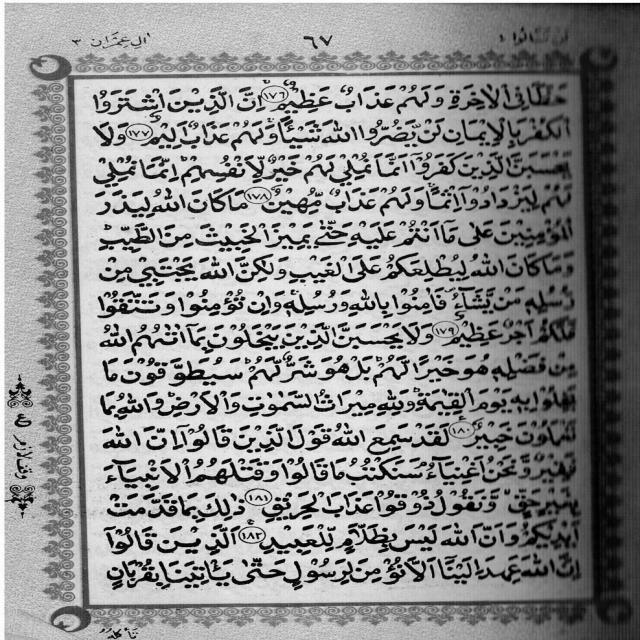 لن تنالوا ٤ ٦٧ اٰل عمرٰن ٣
حَظًّا فِى الْاٰخِرَةِ وَلَهُمْ عَذَابٌ عَظِيْمٌ ﴿١٧٦﴾ اِنَّ الَّذِيْنَ اشْتَرَوُا
الْكُفْرَ بِالْاِيْمَانِ لَنْ يَّضُرُّوا اللّٰهَ شَيْئًا وَلَهُمْ عَذَابٌ اَلِيْمٌ ﴿١٧٧﴾ وَلَا
يَحْسَبَنَّ الَّذِيْنَ كَفَرُوْۤا اَنَّمَا نُمْلِيْ لَهُمْ خَيْرٌ لِّاَنْفُسِهِمْ اِنَّمَا نُمْلِيْ
لَهُمْ لِيَزْدَادُوْۤا اِثْمًا وَلَهُمْ عَذَابٌ مُّهِيْنٌ ﴿١٧٨﴾ مَا كَانَ اللّٰهُ لِيَذَرَ
الْمُؤْمِنِيْنَ عَلٰى مَاۤ اَنْتُمْ عَلَيْهِ حَتّٰى يَمِيْزَ الْخَبِيْثَ مِنَ الطَّيِّبِ
وَمَا كَانَ اللّٰهُ لِيُطْلِعَكُمْ عَلَى الْغَيْبِ وَلٰكِنَّ اللّٰهَ يَجْتَبِيْ مِنْ
رُّسُلِهٖ مَنْ يَّشَآءُ فَاٰمِنُوْا بِاللّٰهِ وَرُسُلِهٖ وَاِنْ تُؤْمِنُوْا وَتَتَّقُوْا
فَلَكُمْ اَجْرٌ عَظِيْمٌ ﴿١٧٩﴾ وَلَا يَحْسَبَنَّ الَّذِيْنَ يَبْخَلُوْنَ بِمَاۤ اٰتٰىهُمُ اللّٰهُ
مِنْ فَضْلِهٖ هُوَ خَيْرًا لَّهُمْ بَلْ هُوَ شَرٌّ لَّهُمْ سَيُطَوَّقُوْنَ مَا
بَخِلُوْا بِهٖ يَوْمَ الْقِيٰمَةِ وَلِلّٰهِ مِيْرَاثُ السَّمٰوٰتِ وَالْاَرْضِ وَاللّٰهُ بِمَا
تَعْمَلُوْنَ خَبِيْرٌ ﴿١٨٠﴾ لَقَدْ سَمِعَ اللّٰهُ قَوْلَ الَّذِيْنَ قَالُوْۤا اِنَّ اللّٰهَ
فَقِيْرٌ وَّنَحْنُ اَغْنِيَآءُ سَنَكْتُبُ مَا قَالُوْا وَقَتْلَهُمُ الْاَنْۢبِيَآءَ
بِغَيْرِ حَقٍّ وَّنَقُوْلُ ذُوْقُوْا عَذَابَ الْحَرِيْقِ ﴿١٨١﴾ ذٰلِكَ بِمَا قَدَّمَتْ
اَيْدِيْكُمْ وَاَنَّ اللّٰهَ لَيْسَ بِظَلَّامٍ لِّلْعَبِيْدِ ﴿١٨٢﴾ اَلَّذِيْنَ قَالُوْۤا
اِنَّ اللّٰهَ عَهِدَ اِلَيْنَاۤ اَلَّا نُؤْمِنَ لِرَسُوْلٍ حَتّٰى يَاْتِيَنَا بِقُرْبَانٍ
تَاْكُلُهُ
ع
وقف لازم